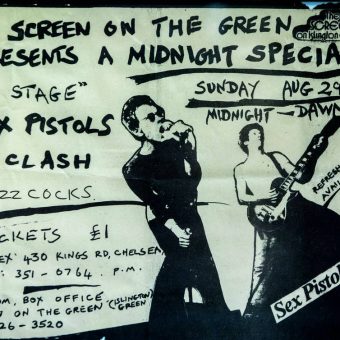 SCREEN ON THE GREEN
ESENTS A MIDNIGHT SPECIA
The
SCREE
on Islington G
STAGE"
SUNDAY AUG 29
MIDNIGHT — DAWN
X PISTOLS
CLASH
ZZCOCKS
REFRESH
AVAI
CKETS £1
EX' 430 KINGS RD, CHELSEA
: 351-0764 P.M.
OM, BOX OFFICE (ISLINGTON
N ON THE GREEN GREEN)
26-3520
Sex Pistol